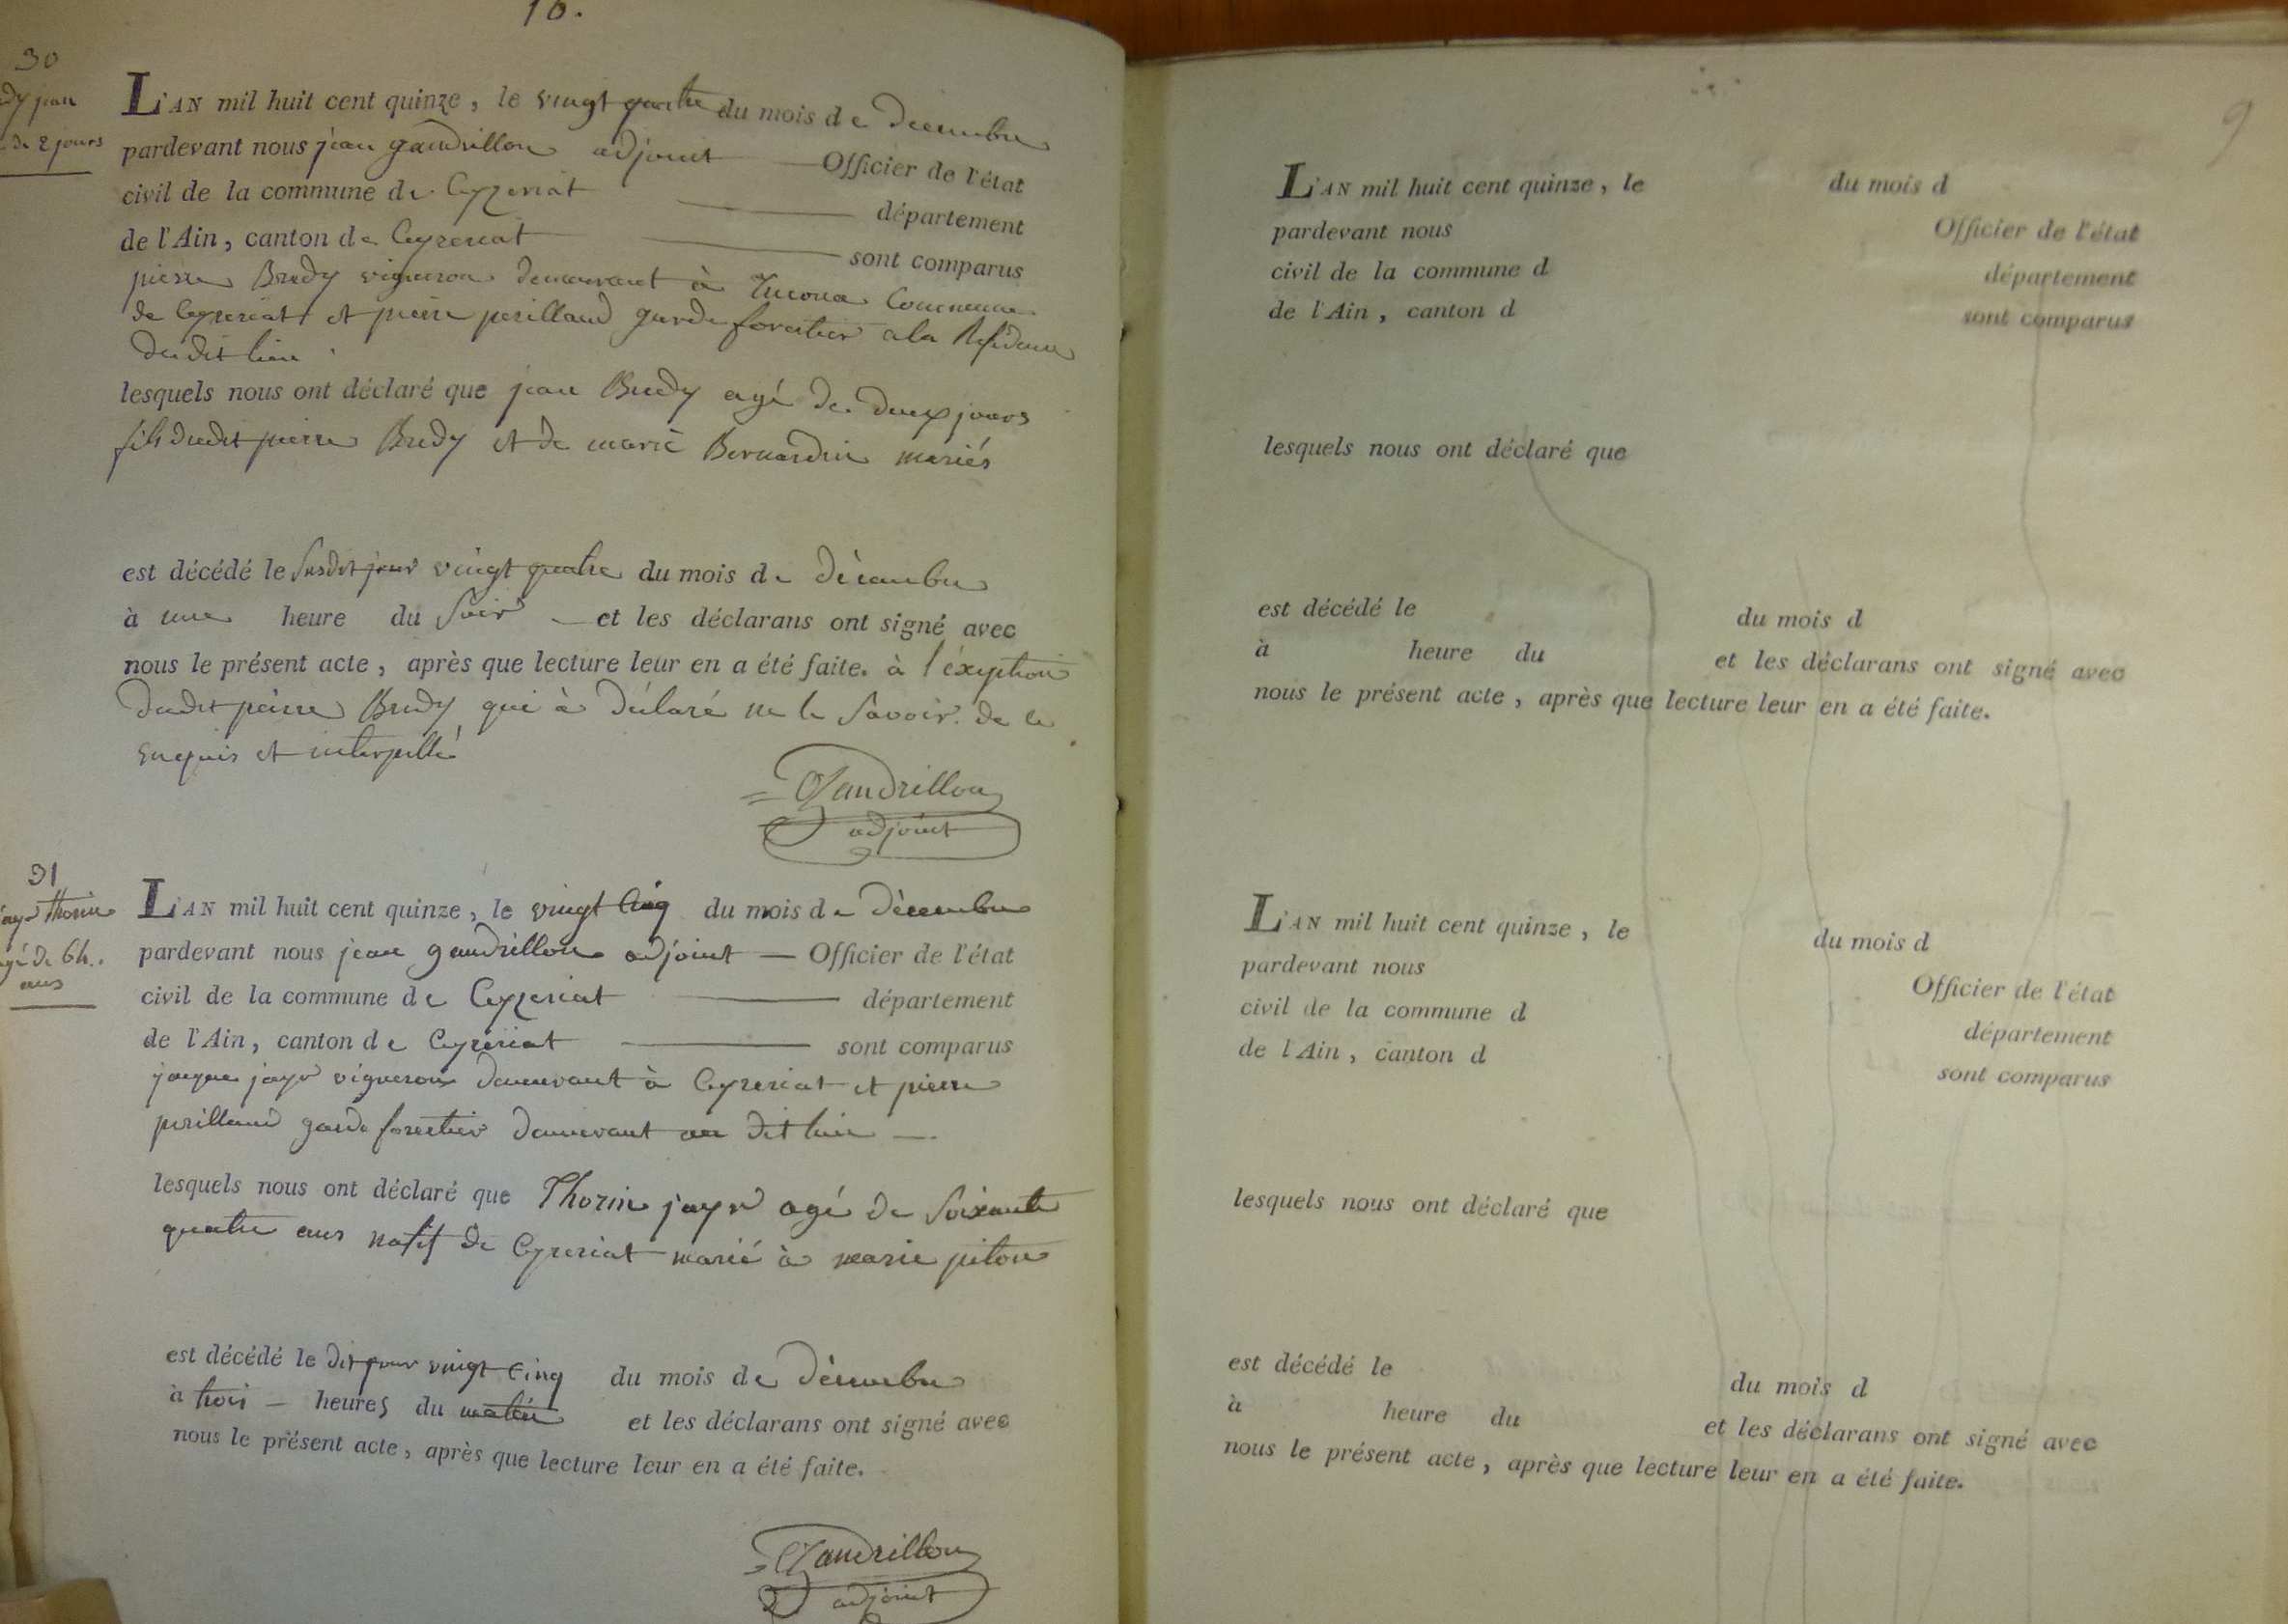 16.
30
dy jean
de 2 jours
L'AN mil huit cent quinze, le vingt quatre du mois de decembre
pardevant nous jean gandrillon adjoint — Officier de l'état
civil de la commune de Ceyzeriat — département
de l'Ain, canton de Ceyzeriat — sont comparus
pierre Bredy vigneron demeurant à Commune
de Ceyzeriat et pierre perillaud garde forestier a la Residence
du dit lieu
lesquels nous ont déclaré que jean Bredy agé de deux jours
fils dudit pierre Bredy et de marie Bernardin mariés
est décédé le susdit jour vingt quatre du mois de décembre
à une heure du soir — et les déclarans ont signé avec
nous le présent acte, après que lecture leur en a été faite. à l'éxeption
dudit pierre Bredy qui à déclaré ne le savoir. de ce
enquis et interpellé
Gandrillon
adjoint
31
jayr thorin
agé de 64.
ans
L'AN mil huit cent quinze, le vingt cinq du mois de décembre
pardevant nous jean gandrillon adjoint — Officier de l'état
civil de la commune de Ceyzeriat — département
de l'Ain, canton de Ceyzeriat — sont comparus
jacque jayr vigneron demeurant à Ceyzeriat et pierre
perillaud garde forestier demeurant au dit lieu —
lesquels nous ont déclaré que Thorin jayr agé de soixante
quatre ans natif de Ceyzeriat marié à marie piton
est décédé le dit jour vingt cinq du mois de décembre
à trois — heures du matin et les déclarans ont signé avec
nous le présent acte, après que lecture leur en a été faite.
Gandrillon
adjoint
9
L'AN mil huit cent quinze, le du mois d
pardevant nous Officier de l'état
civil de la commune d département
de l'Ain, canton d sont comparus
lesquels nous ont déclaré que
est décédé le du mois d
à heure du et les déclarans ont signé avec
nous le présent acte, après que lecture leur en a été faite.
L'AN mil huit cent quinze, le du mois d
pardevant nous Officier de l'état
civil de la commune d département
de l'Ain, canton d sont comparus
lesquels nous ont déclaré que
est décédé le du mois d
à heure du et les déclarans ont signé avec
nous le présent acte, après que lecture leur en a été faite.